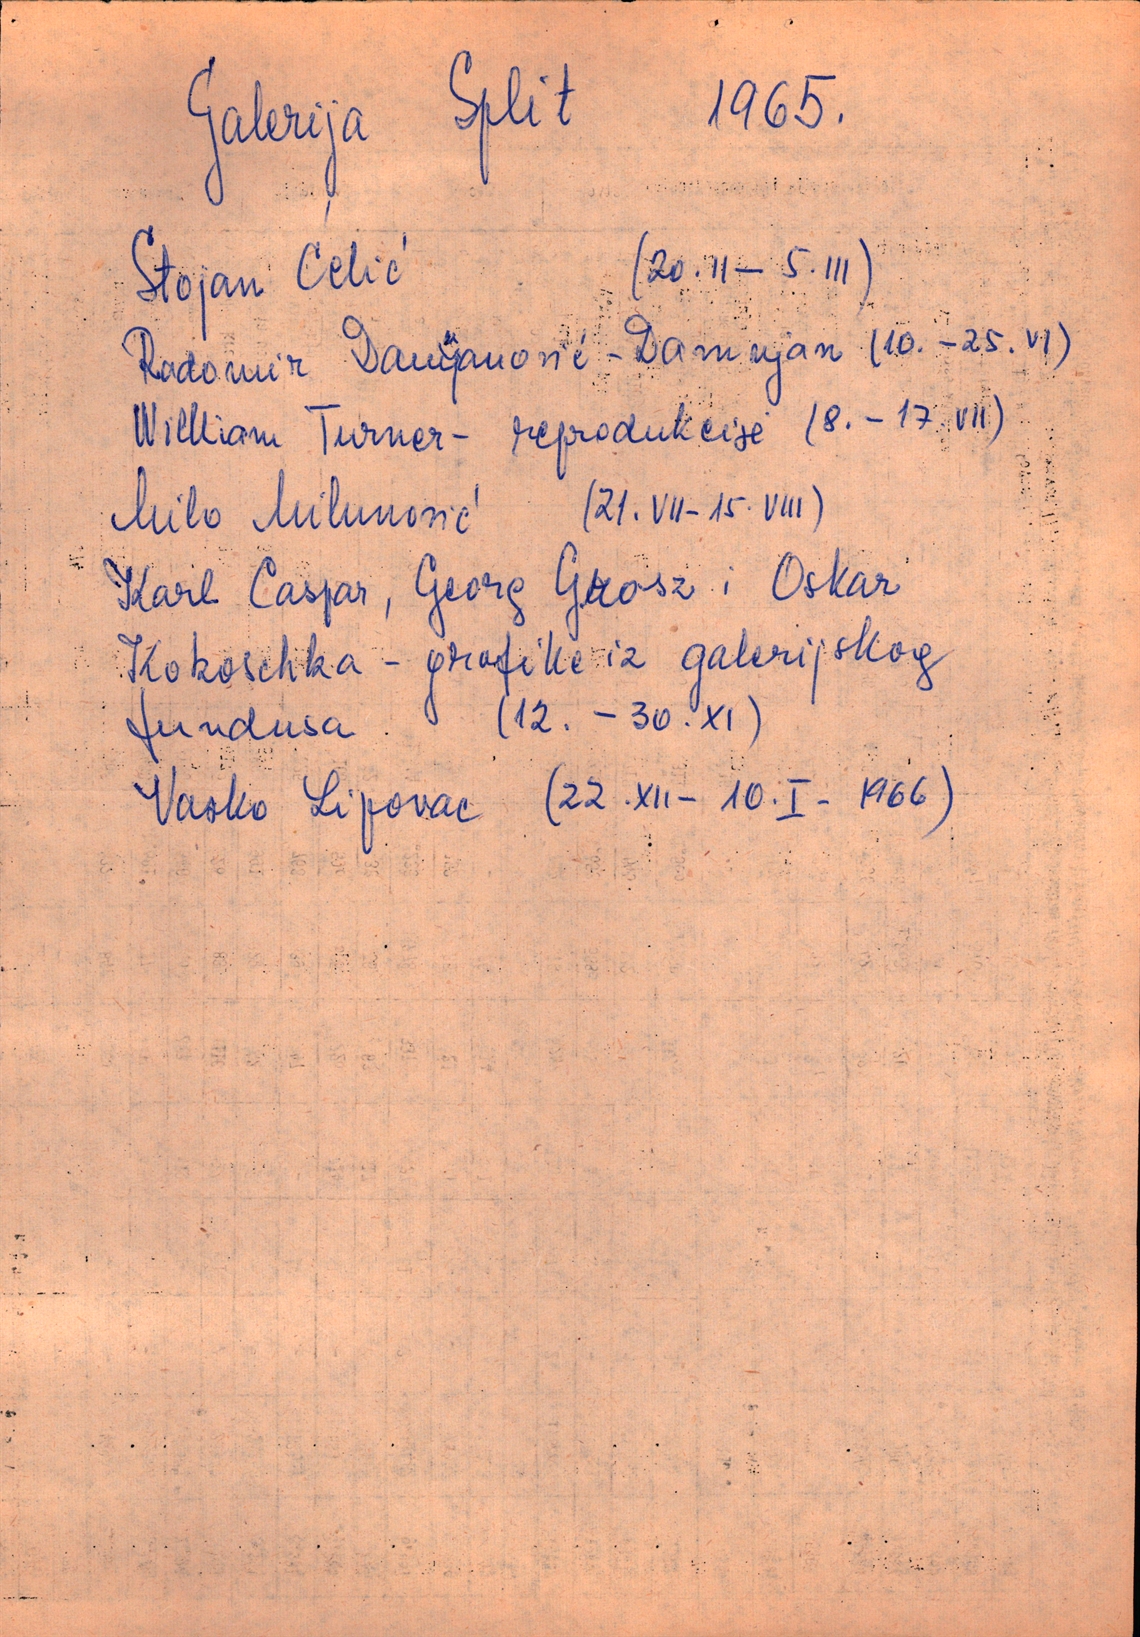 Galerija Split 1965.
Stojan Ćelić (20.II - 5.III)
Radomir Damjanović - Damnjan (10. - 25. VI)
William Turner - reprodukcije (8. - 17. VII)
Milo Milunović (21. VII - 15. VIII)
Karl Caspar, Georg Grosz i Oskar
Kokoschka - grafike iz galerijskog
fundusa (12. - 30. XI)
Vasko Lipovac (22.XII - 10.I - 1966)